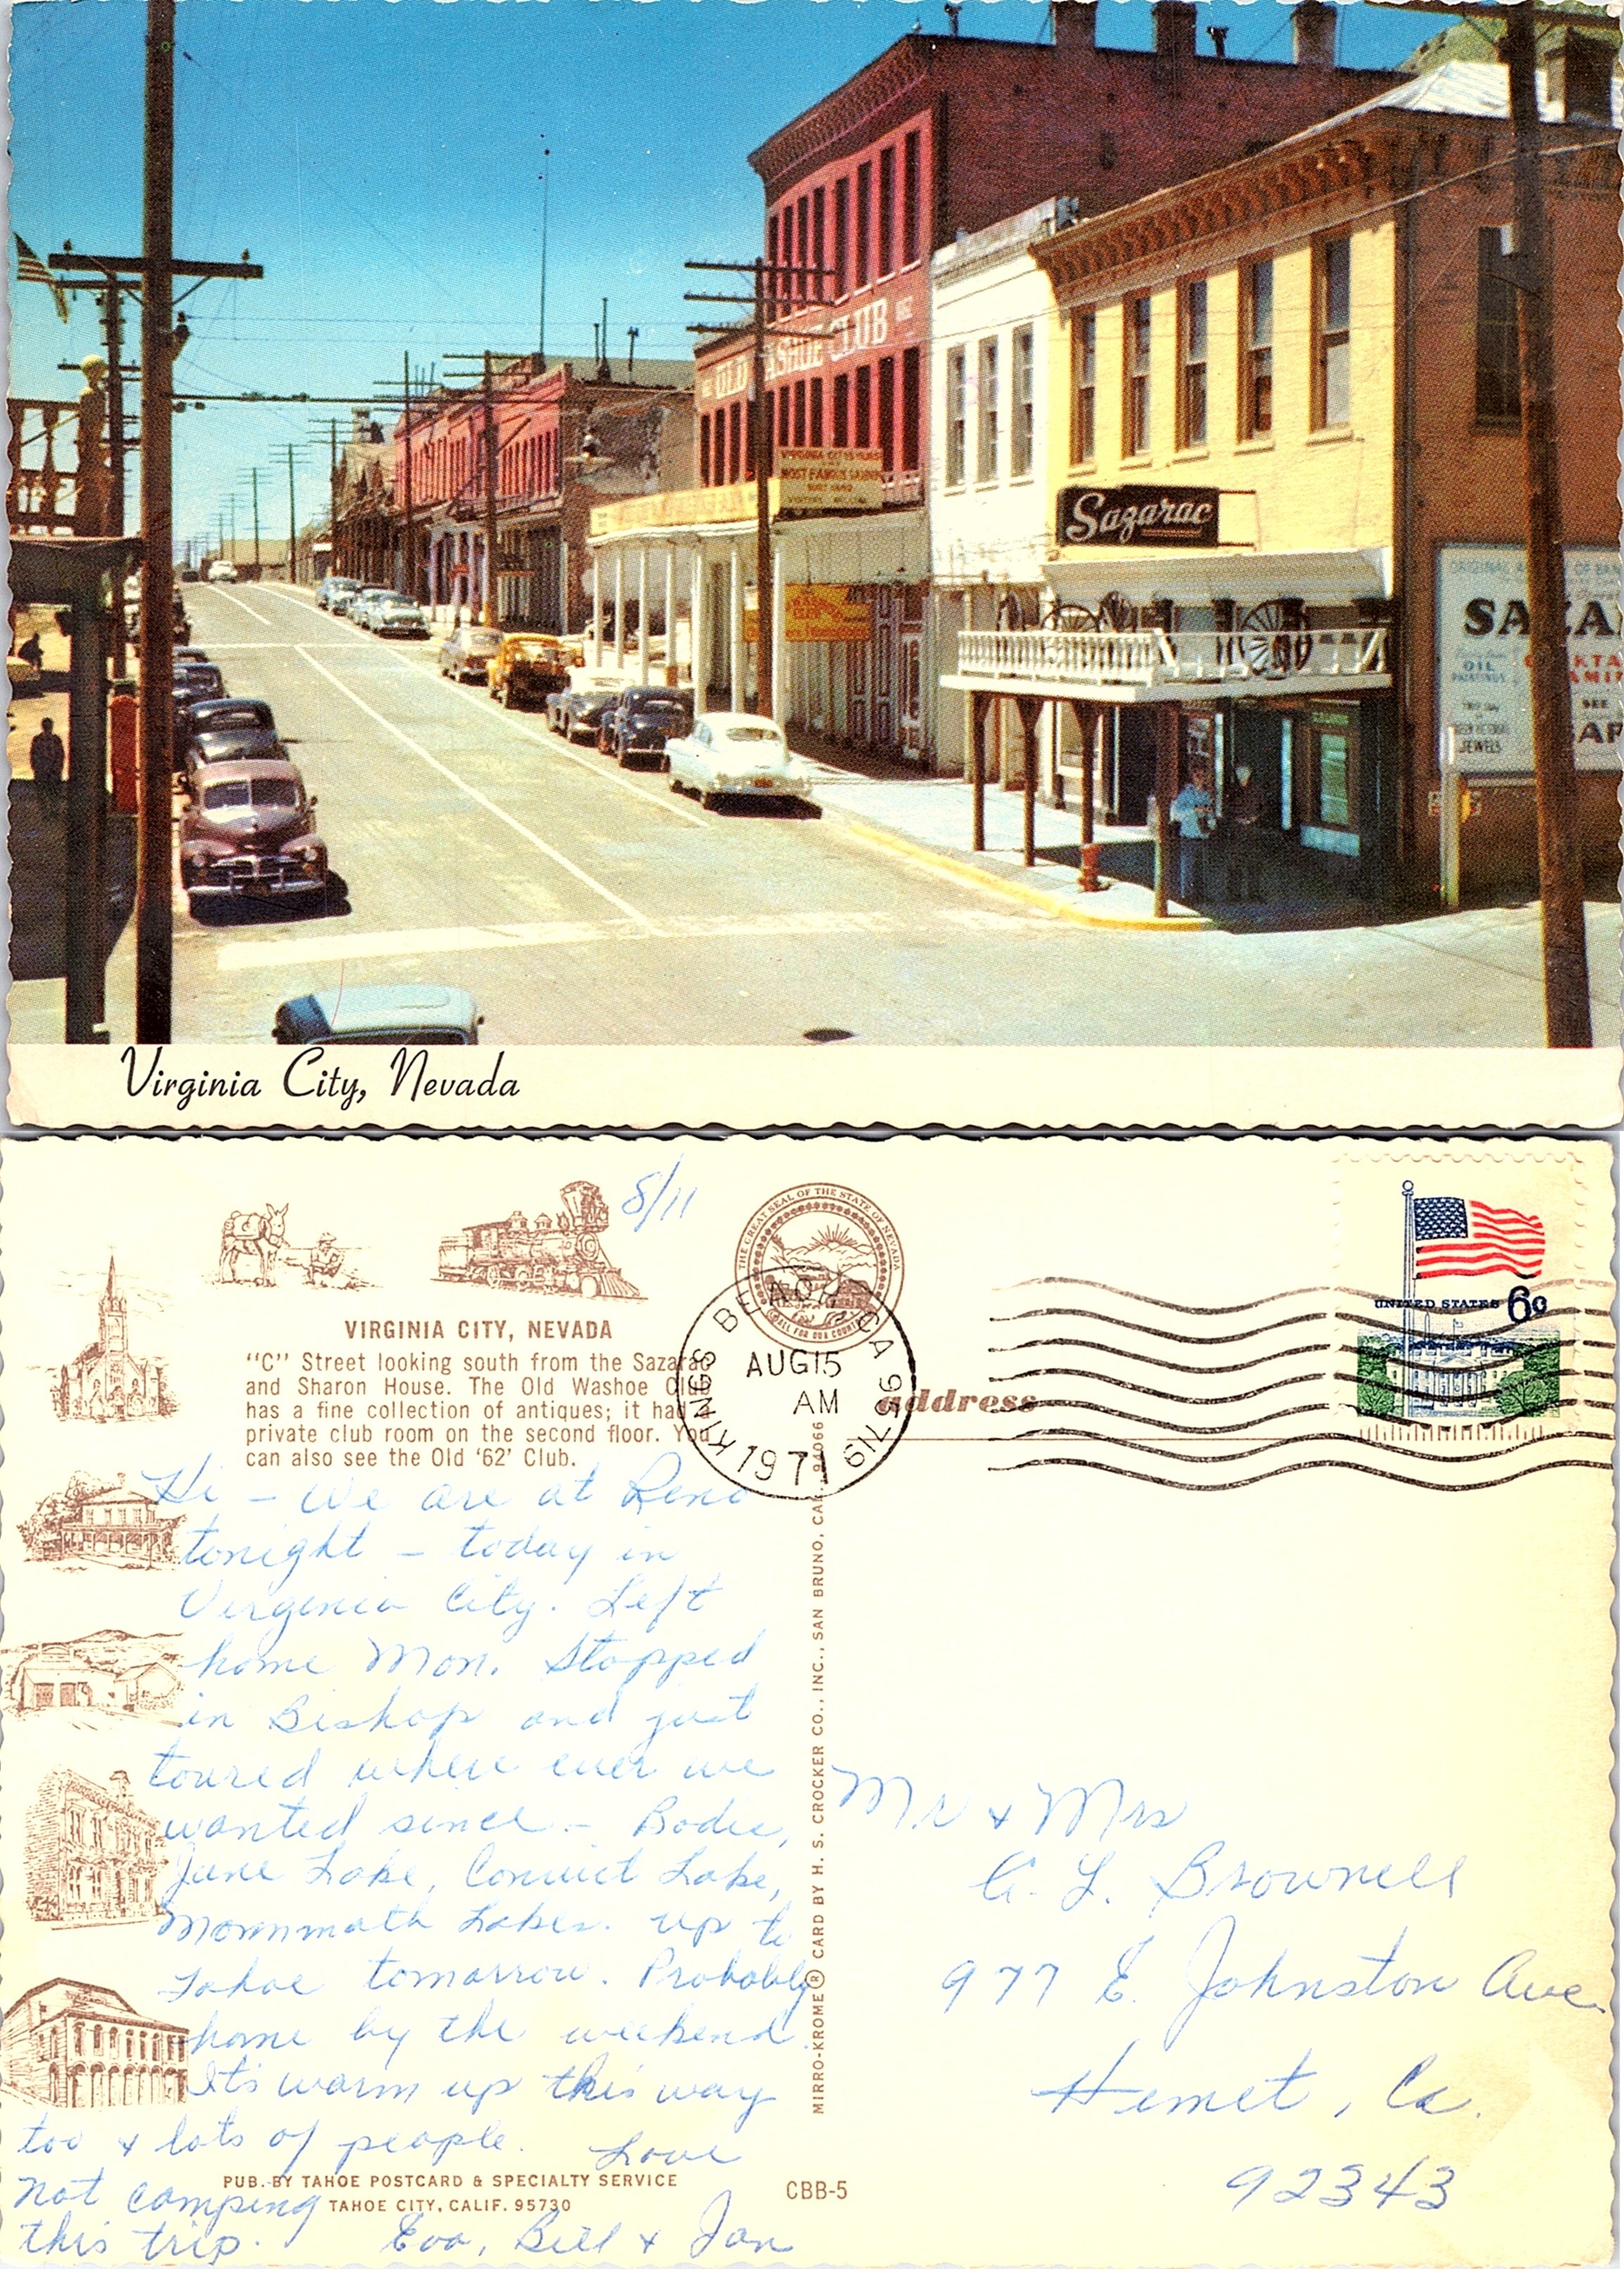 THE OLD WASHOE CLUB
MOST FAMOUS SALOON
Sazarac
ORIGINAL
SAZA
OIL
PAINTINGS
JEWELS
SEE
Virginia City, Nevada
8/11
THE GREAT SEAL OF THE STATE OF NEVADA
ALL FOR OUR COUNTRY
UNITED STATES 6c
KINGS BEACH CA 95719
AUG 15
AM
1971
VIRGINIA CITY, NEVADA
"C" Street looking south from the Sazarac
and Sharon House. The Old Washoe Club
has a fine collection of antiques; it had a
private club room on the second floor. You
can also see the Old '62' Club.
address
Hi - We are at Reno
tonight - today in
Virginia City. Left
home Mon. Stopped
in Bishop and just
toured where ever we
wanted since - Bodie,
June Lake, Convict Lake,
Mommath Lakes. up to
Tahoe tomorrow. Probably
home by the weekend.
It's warm up this way
too & lots of people. Love
Not camping
this trip. Eva, Bill & Jan
PUB. BY TAHOE POSTCARD & SPECIALTY SERVICE
TAHOE CITY, CALIF. 95730
CBB-5
MIRRO-KROME® CARD BY H. S. CROCKER CO., INC., SAN BRUNO, CAL. 94066
Mr & Mrs
A. L. Brownell
977 E. Johnston Ave.
Hemet, Ca.
92343